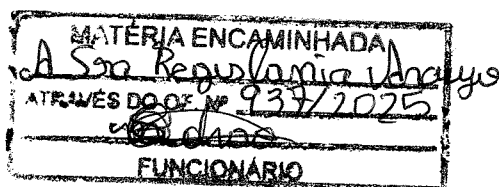 MATÉRIA ENCAMINHADA
A Sra Regislania Araujo
ATRAVÉS DO OF. Nº 937/2025
FUNCIONÁRIO